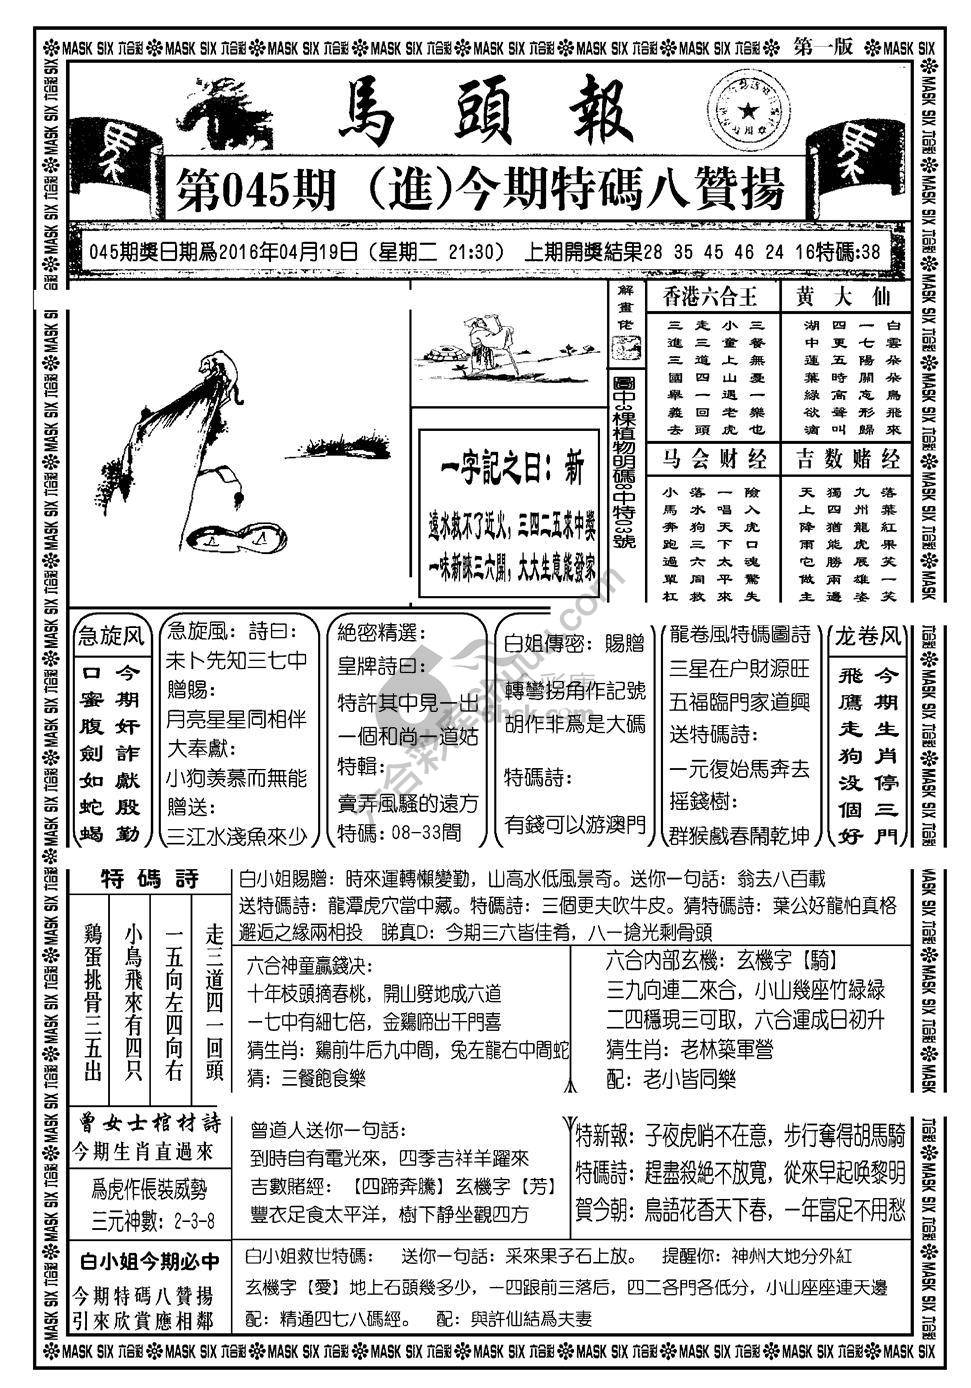 MASK SIX 六合彩 MASK SIX 六合彩 MASK SIX 六合彩 MASK SIX 六合彩 MASK SIX 六合彩 MASK SIX 六合彩 MASK SIX 六合彩 第一版 MASK SIX
馬頭報
第045期（進）今期特碼八贊揚
045期獎日期爲2016年04月19日（星期二 21:30） 上期開獎結果28 35 45 46 24 16特碼:38
解畫佬
圖中3棵植物明碼8中特03號
一字記之曰：新
遠水救不了近火，三四二五求中獎
一味新睞三六開，大大生意能發家
香港六合王
三餐無憂一樂也
小童上山遇老虎
走三道四一回頭
三進三國舉義去
黄大仙
白雲朵朵鳥飛來
一七陽關忘形歸
四更五時高聲叫
湖中蓮葉綠欲滴
马会财经
險入虎口魂驚失
一唱天下太平來
落水狗三六同救
小馬奔跑過單杠
吉数赌经
落葉紅果笑一笑
九州龍虎展雄姿
獨四猶能勝兩邊
天上降雨它做主
急旋风
今期奸詐獻殷勤
口蜜腹劍如蛇蝎
急旋風：詩曰：
未卜先知三七中
贈賜：
月亮星星同相伴
大奉獻：
小狗羨慕而無能
贈送：
三江水淺魚來少
絕密精選：
皇牌詩曰：
特許其中見一出
一個和尚一道姑
特輯：
賣弄風騷的遠方
特碼：08-33間
白姐傳密：賜贈
轉彎拐角作記號
胡作非爲是大碼
特碼詩：
有錢可以游澳門
龍卷風特碼圖詩
三星在户財源旺
五福臨門家道興
送特碼詩：
一元復始馬奔去
摇錢樹：
群猴戲春鬧乾坤
龙卷风
今期生肖停三門
飛鷹走狗没個好
特碼詩
走三道四一回頭
一五向左四向右
小鳥飛來有四只
鷄蛋挑骨三五出
白小姐賜贈：時來運轉懶變勤，山高水低風景奇。送你一句話：翁去八百載
送特碼詩：龍潭虎穴當中藏。特碼詩：三個更夫吹牛皮。猜特碼詩：葉公好龍怕真格
邂逅之緣兩相投 睇真D：今期三六皆佳肴，八一搶光剩骨頭
六合神童贏錢决：
十年枝頭摘春桃，開山劈地成六道
一七中有細七倍，金鷄啼出干門喜
猜生肖：鷄前牛后九中間，兔左龍右中間蛇
猜：三餐飽食樂
六合内部玄機：玄機字【騎】
三九向連二來合，小山幾座竹緑緑
二四穩現三可取，六合運成日初升
猜生肖：老林築軍營
配：老小皆同樂
曾女士棺材詩
今期生肖直過來
爲虎作倀裝威勢
三元神數：2-3-8
曾道人送你一句話：
到時自有電光來，四季吉祥羊躍來
吉數賭經：【四蹄奔騰】玄機字【芳】
豐衣足食太平洋，樹下静坐觀四方
特新報：子夜虎哨不在意，步行奪得胡馬騎
特碼詩：趕盡殺絶不放寬，從來早起唤黎明
賀今朝：鳥語花香天下春，一年富足不用愁
白小姐今期必中
今期特碼八贊揚
引來欣賞應相鄰
白小姐救世特碼： 送你一句話：采來果子石上放。 提醒你：神州大地分外紅
玄機字【愛】地上石頭幾多少，一四跟前三落后，四二各門各低分，小山座座連天邊
配：精通四七八碼經。 配：與許仙結爲夫妻
MASK SIX 六合彩 MASK SIX 六合彩 MASK SIX 六合彩 MASK SIX 六合彩 MASK SIX 六合彩 MASK SIX 六合彩 MASK SIX 六合彩 MASK SIX 六合彩 MASK SIX